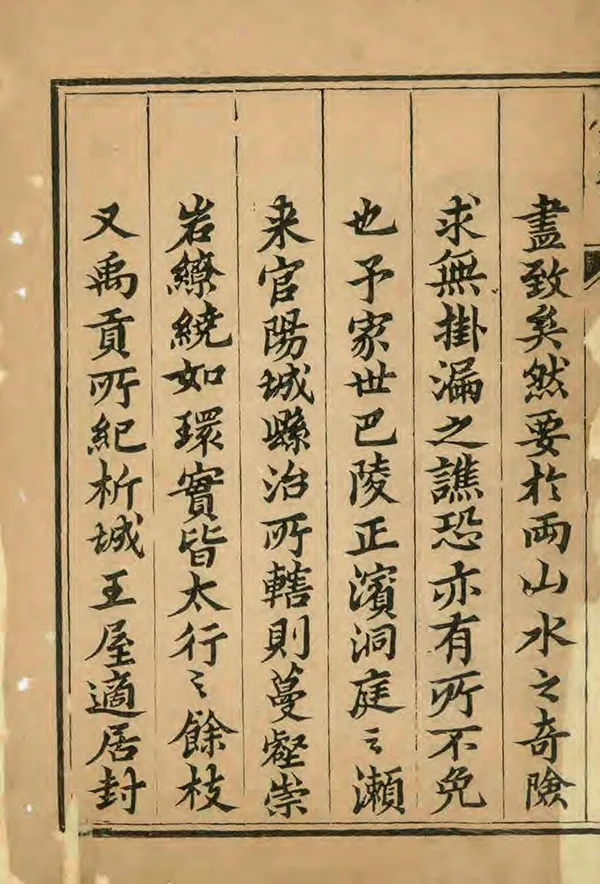 盡致矣然要於兩山水之奇險
求無掛漏之譙恐亦有所不免
也予家世巴陵正濱洞庭之瀬
来官陽城縣治所轄則蔓壑崇
岩繚繞如環實皆太行之餘枝
又禹貢所紀析城王屋適居封